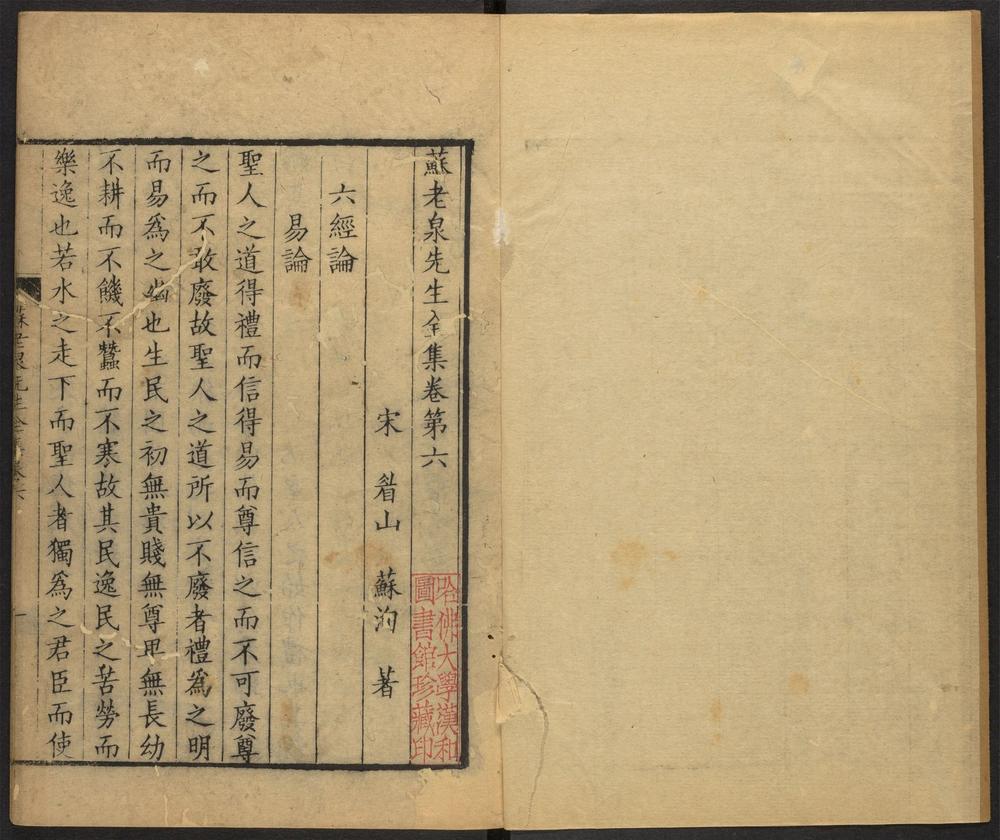 蘇老泉先生全集卷第六
宋　眉山　蘇洵　著
六經論
易論
聖人之道得禮而信得易而尊信之而不可廢尊
之而不敢廢故聖人之道所以不廢者禮爲之明
而易爲之幽也生民之初無貴賤無尊卑無長幼
不耕而不饑不蠶而不寒故其民逸民之苦勞而
樂逸也若水之走下而聖人者獨爲之君臣而使
蘇老泉先生全集卷六
一
哈佛大學漢和
圖書館珍藏印